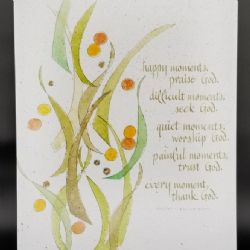 happy moments,
praise God.
difficult moments,
seek God.
quiet moments,
worship God.
painful moments,
trust God.
every moment,
thank God.